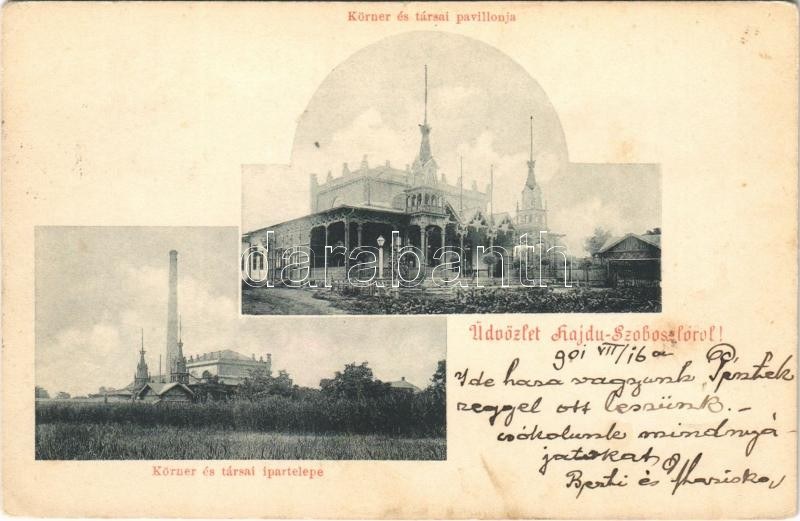 Körner és társai pavillonja
darabanth
Üdvözlet Hajdu-Szoboszlóról!
901 VII/16 a
Ide haza vagyunk Péntek
reggel ott leszünk. -
csókolunk mindnyá-
jatokat
és Mariska
Körner és társai ipartelepe